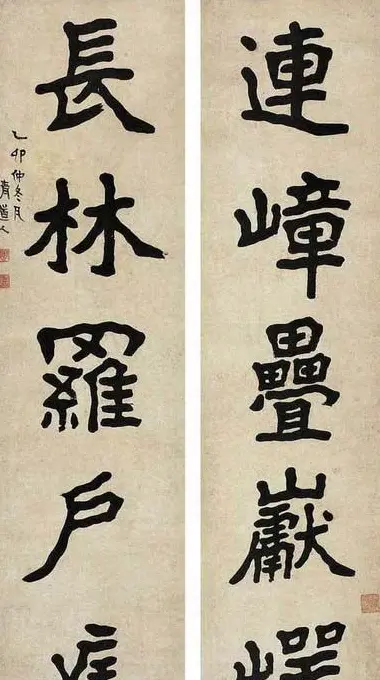 連嶂疊巘崿
長林羅戶
乙卯仲冬月
清道人